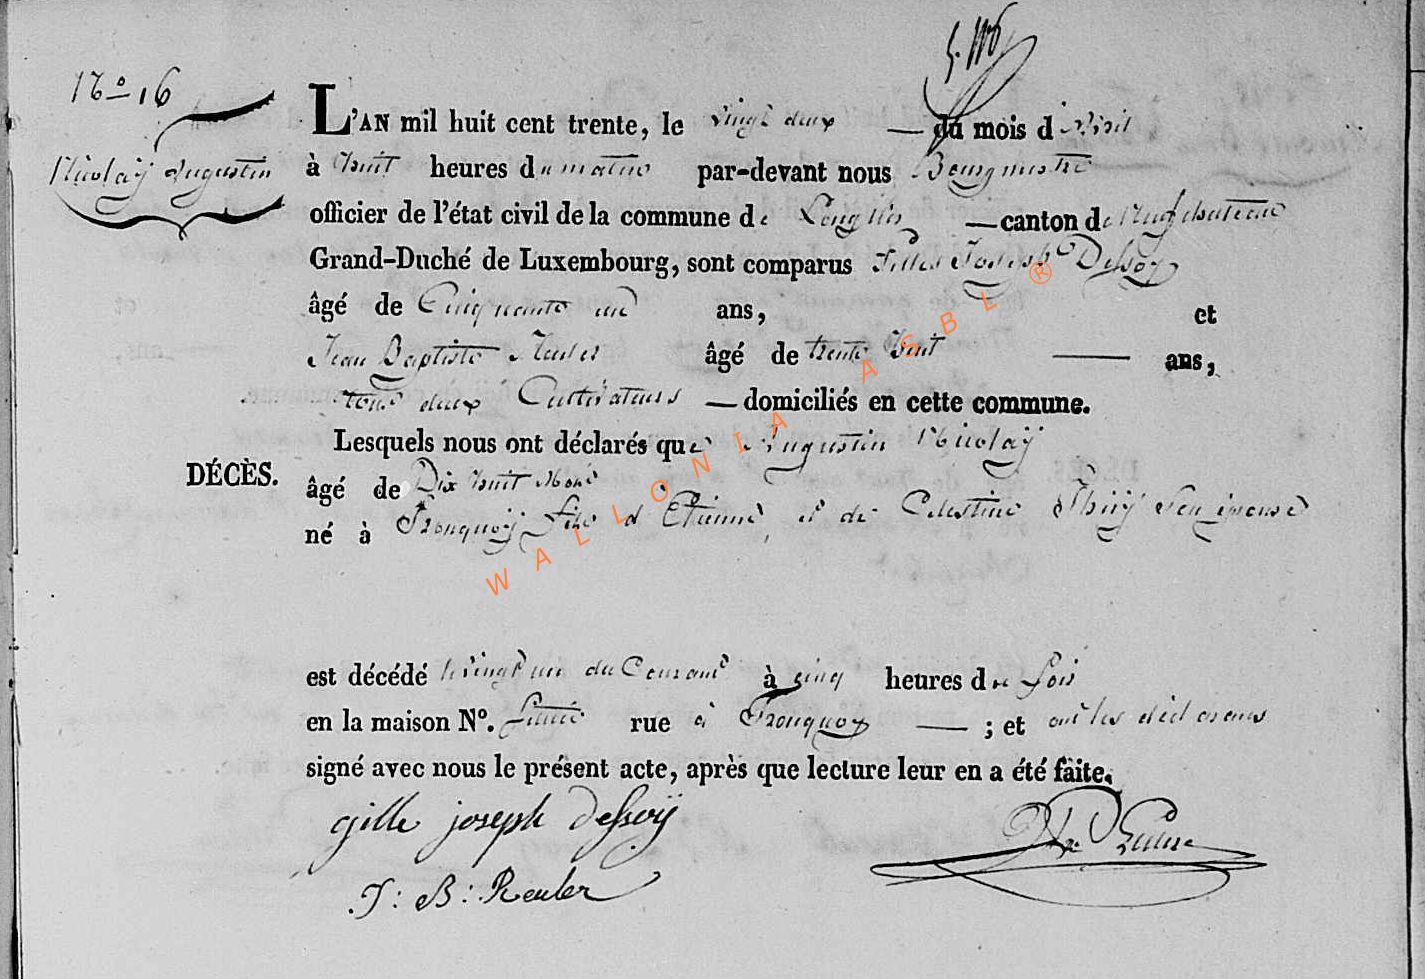 N° 16
Nicolaÿ Augustin
L'AN mil huit cent trente, le vingt deux — du mois d'avril
à huit heures du matin par-devant nous Bourgmestre
officier de l'état civil de la commune de Longlier — canton de Neufchateau
Grand-Duché de Luxembourg, sont comparus Gilles Joseph Dessoy
âgé de Cinquante un ans, et
Jean Baptiste Reuler âgé de trente huit — ans,
tous deux Cultivateurs — domiciliés en cette commune.
Lesquels nous ont déclarés que Augustin Nicolaÿ
DÉCÈS.
âgé de Dix huit Mois
né à Tronquoÿ fils d'Etienne, et de Celestine Thirÿ son épouse
est décédé le vingt un du Courant à cinq heures du soir
en la maison N°. rue à Tronquoy — ; et ont les déclarans
signé avec nous le présent acte, après que lecture leur en a été faite.
gille joseph dessoÿ
J: B: Reuler
WALLONIA ASBL ®